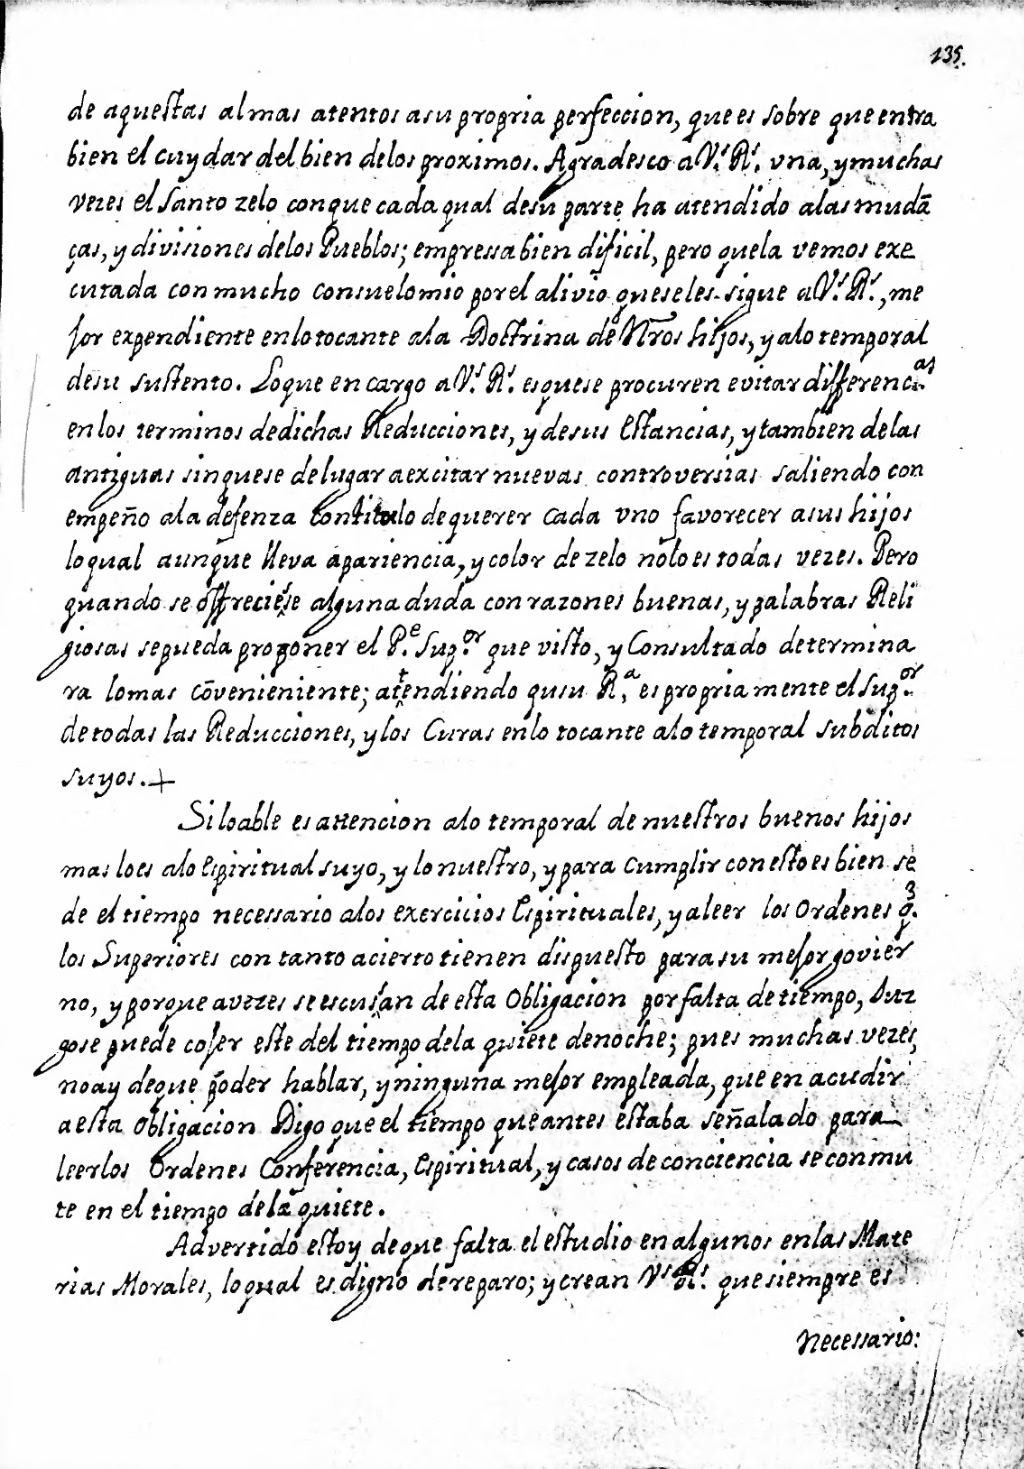 135.
de aquestas almas atentos asu propria perfeccion, que es sobre que entra
bien el cuydar del bien delos proximos. Agradesco a V.s R.s vna, y muchas
vezes el santo zelo conque cada qual desu parte ha atendido alas mudā
ças, y divisiones delos Pueblos; empressa bien dificil, pero quela vemos exe
cutada con mucho consuelo mio por el alivio que seles sigue a V.s R.s, me
jor expendiente enlo tocante ala Doctrina de Nr̄os hijos, y alo temporal
desu sustento. Loque encargo a V.s R.s es quese procuren evitar differencias
enlos terminos dedichas Reducciones, y desus Estancias, y tambien delas
antiguas sinquese delugar aexcitar nuevas controversias saliendo con
empeño ala defenza contitulo dequerer cada vno favorecer asus hijos
loqual aunque lleva apariencia, y color de zelo nolo es todas vezes. Pero
quando se offreciese alguna duda con razones buenas, y palabras Reli
giosas sepueda proponer el P.e Sup.or que visto, y Consultado determina
ra lomas cōvenieniente; attendiendo qu su R.a es propriamente el Sup.or
de todas las Reducciones, y los Curas enlo tocante alo temporal subditos
suyos. +
Si loable es attencion alo temporal de nuestros buenos hijos
mas loes alo Espiritual suyo, y lo nuestro, y para cumplir con esto es bien se
de el tiempo necessario alos exercicios Espirituales, y aleer los Ordenes q̃.
los Superiores con tanto acierto tienen dispuesto para su mejor govier
no, y porque avezes se escusan de esta Obligacion por falta de tiempo, Juz
gose puede cojer este del tiempo dela quiete denoche; pues muchas vezes
no ay deque poder hablar, y ninguna mejor empleada, que en acudir
a esta Obligacion Digo que el tiempo que antes estaba señalado para
leerlos Ordenes Conferencia, Espiritual, y casos de conciencia se conmu
te en el tiempo dela quiete.
Advertido estoy deque falta el estudio en algunos enlas Mate
rias Morales, loqual es digno de reparo; y crean V.s R.s que siempre es
Necessario: